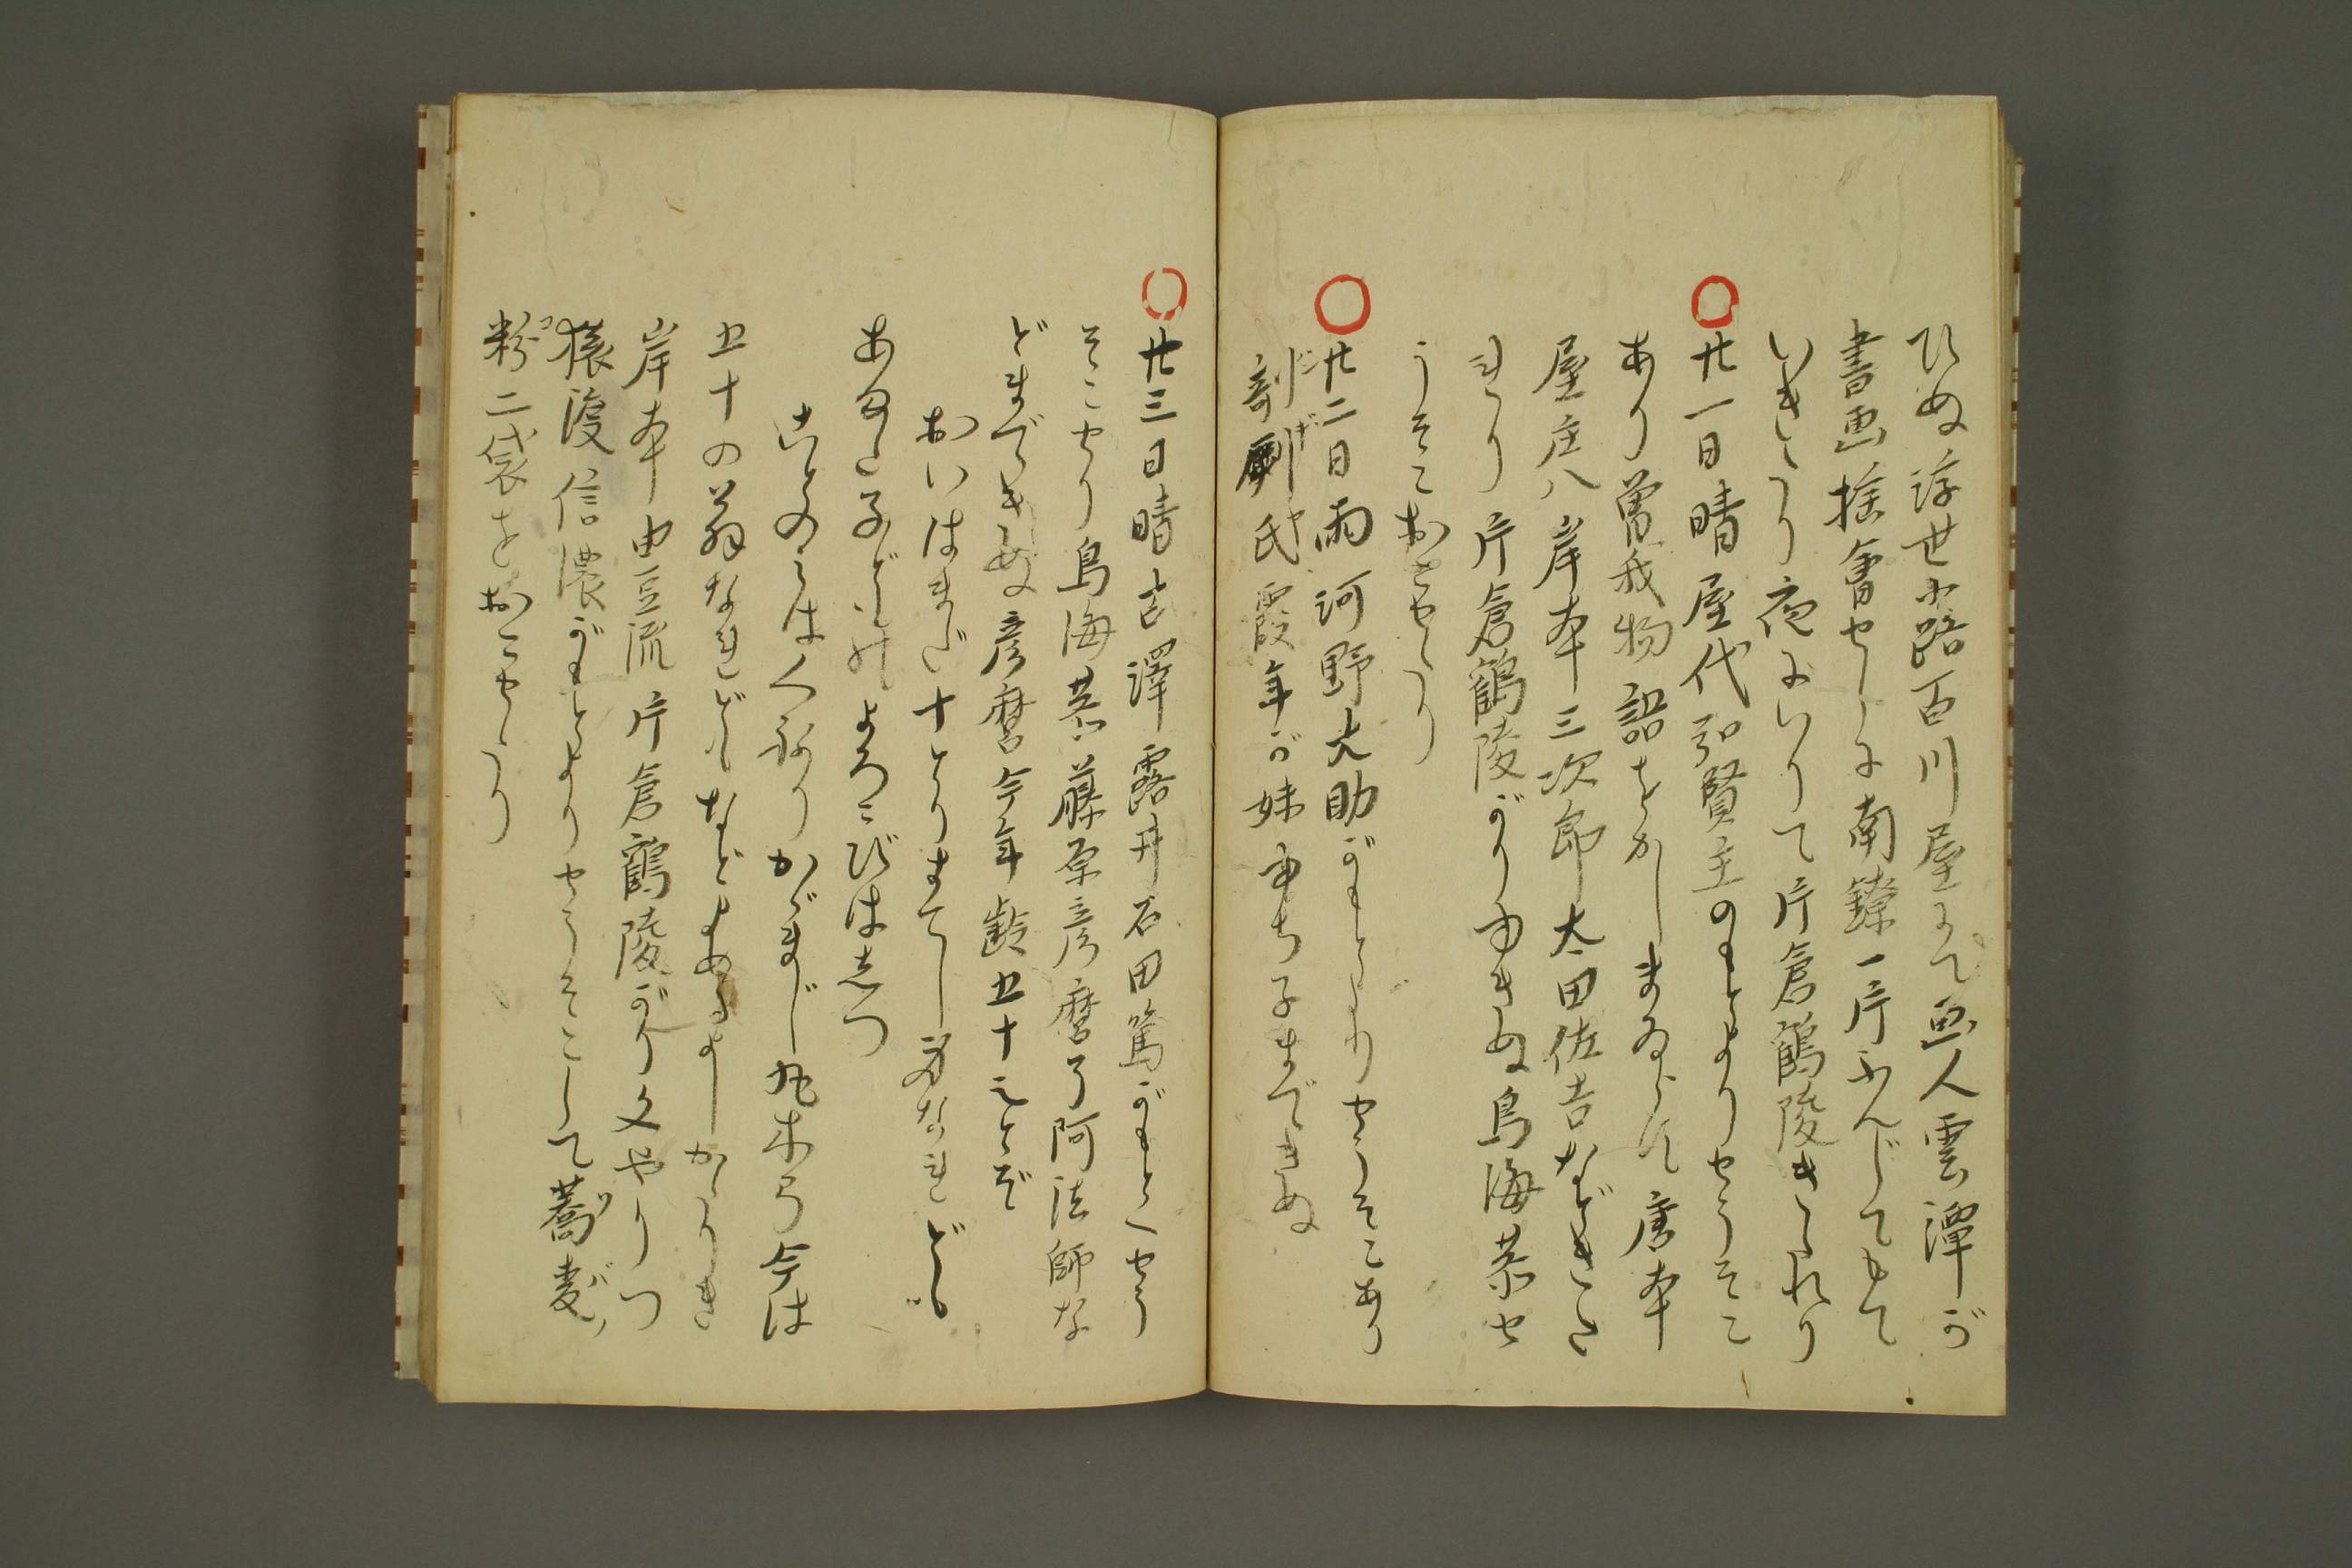 ひぬ浮世小路百川屋にて画人雲潭が
書画捨会せしに南鐐一片ふんじてもて
いきたり夜にいりて片倉鶴陵きたれり
廿一日晴屋代弘賢主のもとよりせうそこ
あり曽我物語をかしまゐらす唐本
屋庄八岸本三次郎太田佐吉などきた
れり片倉鶴陵がりゆきぬ鳥海恭せ
うそこおこせたり
廿二日雨河野大助がもとよりせうそこあり
剞劂氏霞年が妹ゆち子まできぬ
廿三日晴吉澤露井石田篤がもとへせう
そこせり鳥海恭藤原彦麿了阿法師な
どまできぬ彦麿今年齢五十之とぞ
おいはまだ十とりすてし身なれども
あまた子どものよろこびはしつ
ことのははくち祈りかゞまじ丸木弓今は
五十の翁なれどもなどよめるよしかたりき
岸本由豆流片倉鶴陵がり文やりつ
猿渡信濃がもとよりせうそこして蕎麦
粉二袋をおこせたり